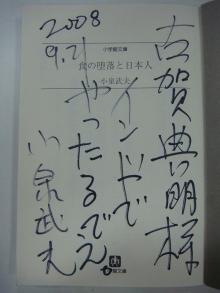 2008
9.21
小学館文庫
食の堕落と日本人
小泉武夫
古賀典明様
インドで
やったるでえ
小泉武夫
館文庫